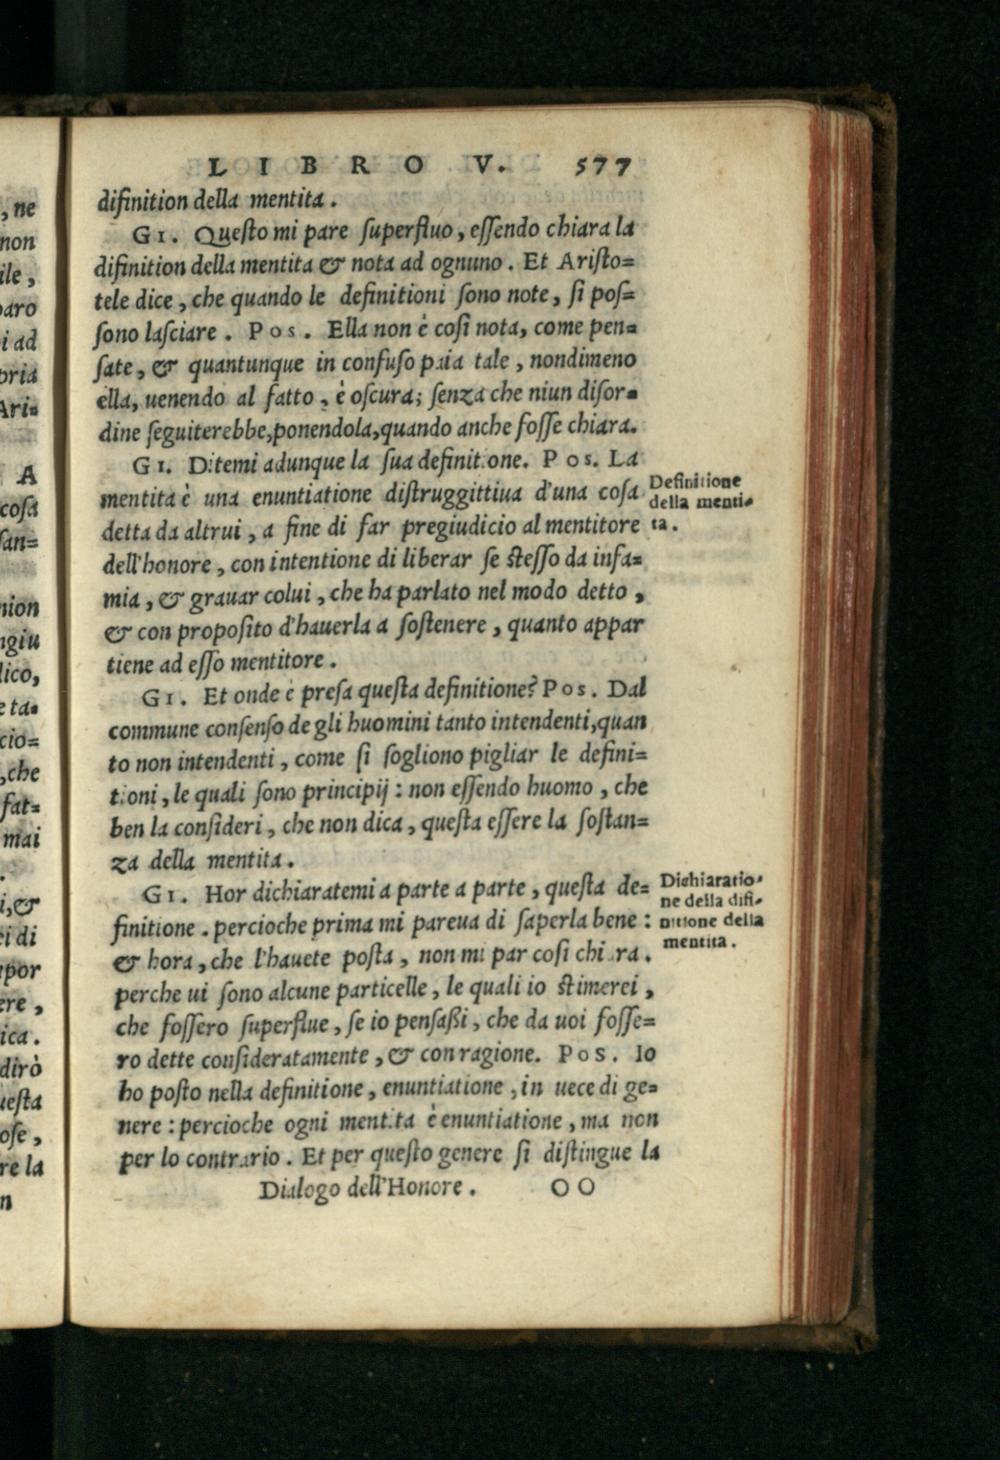 LIBRO V. 577
difinition della mentita.
GI. Questo mi pare superfluo, essendo chiara la
difinition della mentita & nota ad ognuno. Et Aristo=
tele dice, che quando le definitioni sono note, si pos=
sono lasciare. Pos. Ella non è così nota, come pen=
sate, & quantunque in confuso paia tale, nondimeno
ella, uenendo al fatto, è oscura; senza che niun disor=
dine seguiterebbe, ponendola, quando anche fosse chiara.
GI. Ditemi adunque la sua definitione. Pos. La
mentita è una enuntiatione distruggittiua d'una cosa
Definitione
della menti=
ta.
detta da altrui, a fine di far pregiudicio al mentitore
dell'honore, con intentione di liberar se stesso da infa=
mia, & grauar colui, che ha parlato nel modo detto,
& con proposito d'hauerla a sostenere, quanto appar
tiene ad esso mentitore.
GI. Et onde è presa questa definitione? Pos. Dal
commune consenso de gli huomini tanto intendenti, quan
to non intendenti, come si sogliono pigliar le defini=
tioni, le quali sono principij: non essendo huomo, che
ben la consideri, che non dica, questa essere la sostan=
za della mentita.
GI. Hor dichiaratemi a parte a parte, questa de=
Dichiaratio=
ne della difi=
nitione della
mentita.
finitione. percioche prima mi pareua di saperla bene:
& hora, che l'hauete posta, non mi par così chiara.
perche ui sono alcune particelle, le quali io stimerei,
che fossero superflue, se io pensassi, che da uoi fosse=
ro dette consideratamente, & con ragione. Pos. Io
ho posto nella definitione, enuntiatione, in uece di ge=
nere: percioche ogni mentita è enuntiatione, ma non
per lo contrario. Et per questo genere si distingue la
Dialogo dell'Honore. OO
, ne
non
ile,
paro
i ad
pria
Ari=
A
cosa
san=
nion
ngiu
lico,
e ta=
cio=
, che
fat=
mai
i, &
ei di
apor
ere,
ica.
dirò
uesta
ose,
re la
n